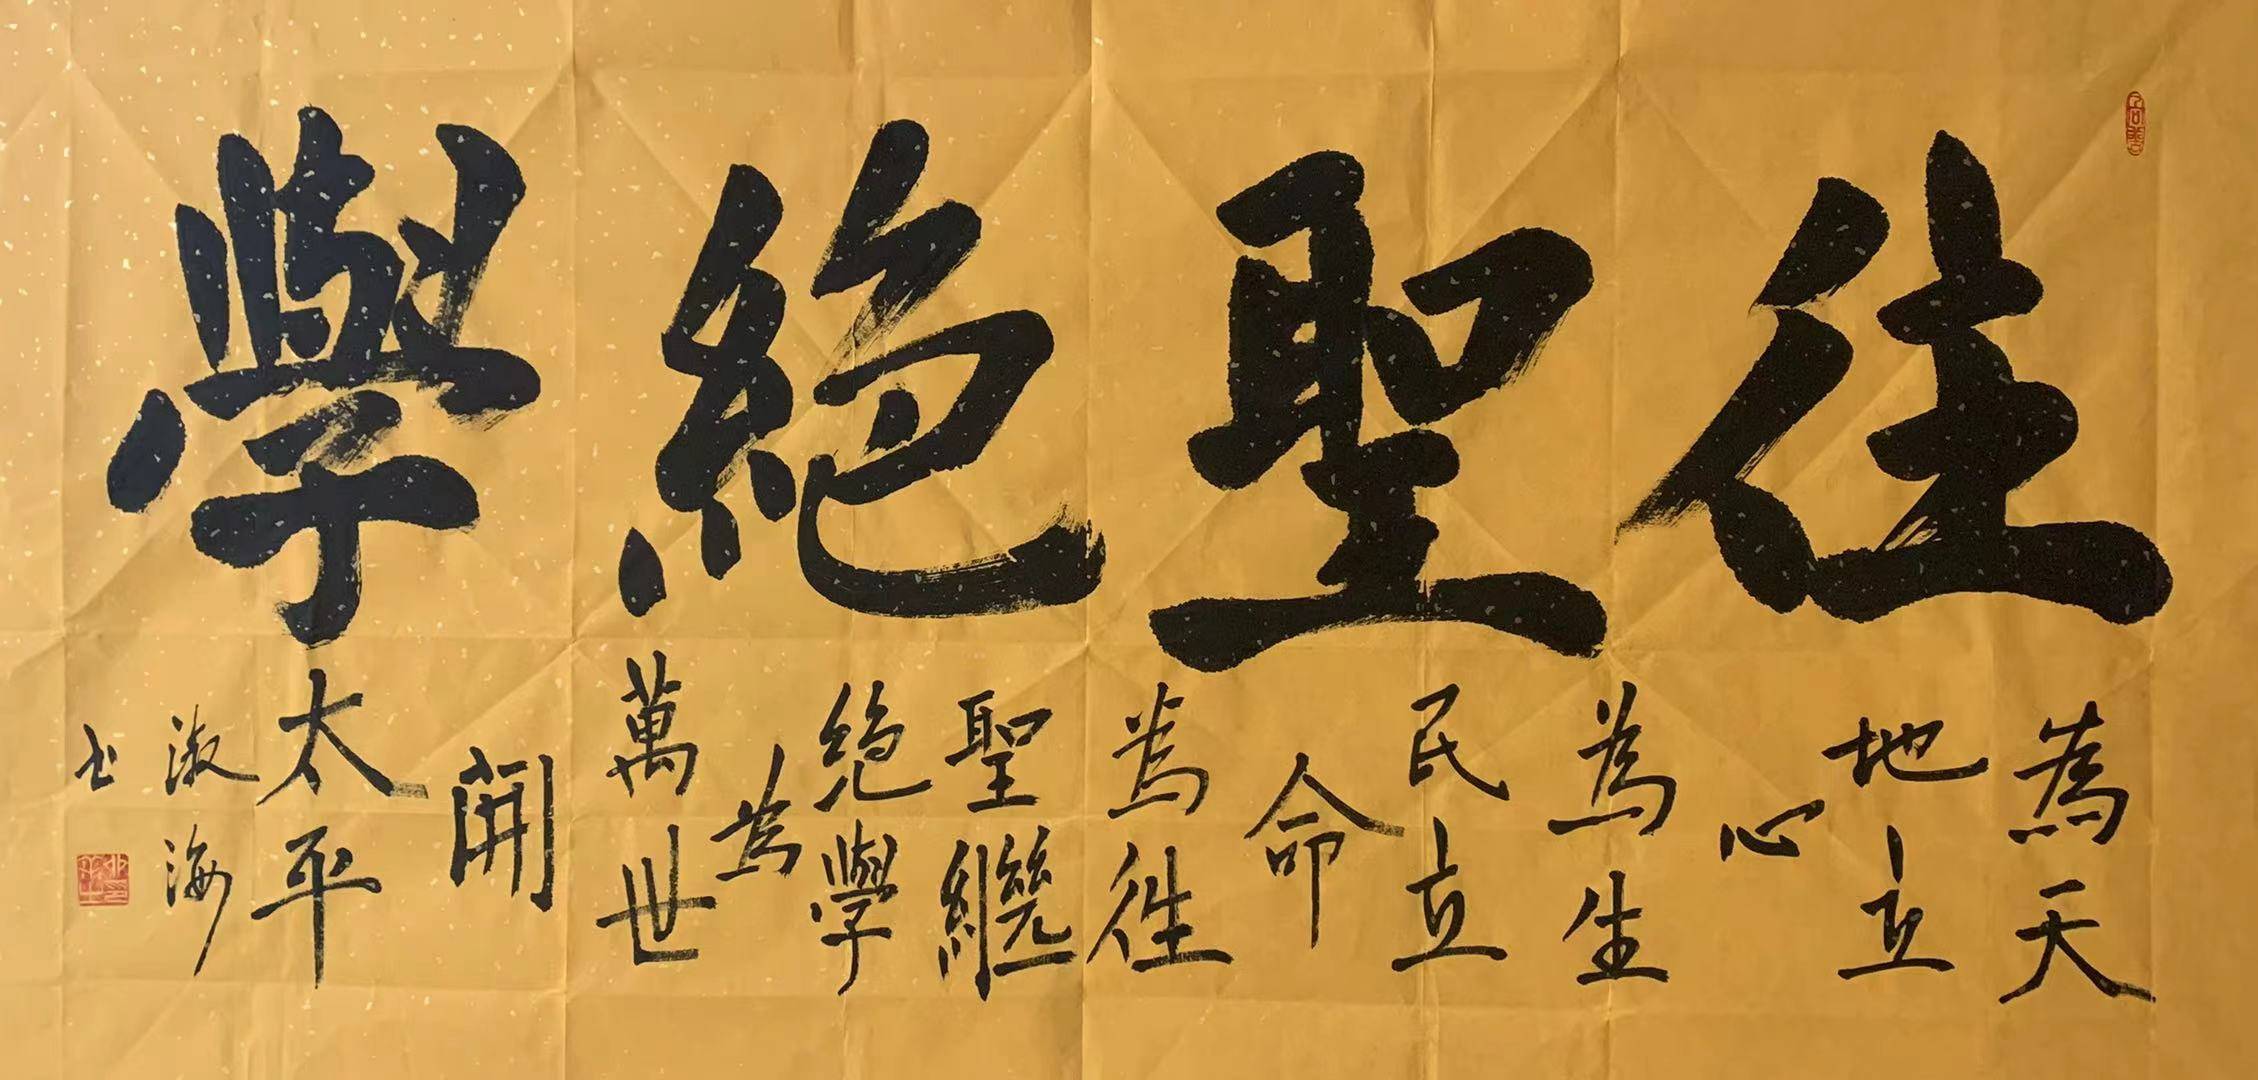 往聖絕學
為天
地立
心
為生
民立
命
為往
聖繼
絕學
為
萬世
開
太平
淑海
书